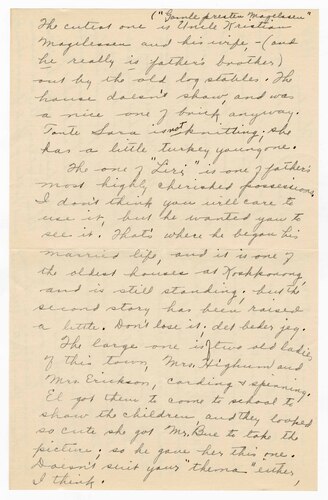 ("Gamle presten Magelssen"
The cutest one is Uncle Kristian
Magelssen and his wife, - (and
he really is father's brother)
out by the old log stables. The
house doesn't show, and was
a nice one of brick anyway.
Tante Sara is not knitting; she
has a little turkey young one.
The one of "Liri" is one of father's
most highly cherished possessions.
I don't think you will care to
use it, but he wanted you to
see it. That's where he began his
married life, and it is one of
the oldest houses at Koshkonong,
and is still standing; but the
second story has been raised
a little. Don't lose it, det beder jeg.
The large one is of two old ladies
of this town, Mrs. Highum and
Mrs. Erickson, carding & spinning.
El got them to come to school to
show the children and they looked
so cute she got Mr. Bue to take the
picture; so he gave her this one.
Doesn't suit your "thema" either,
I think.